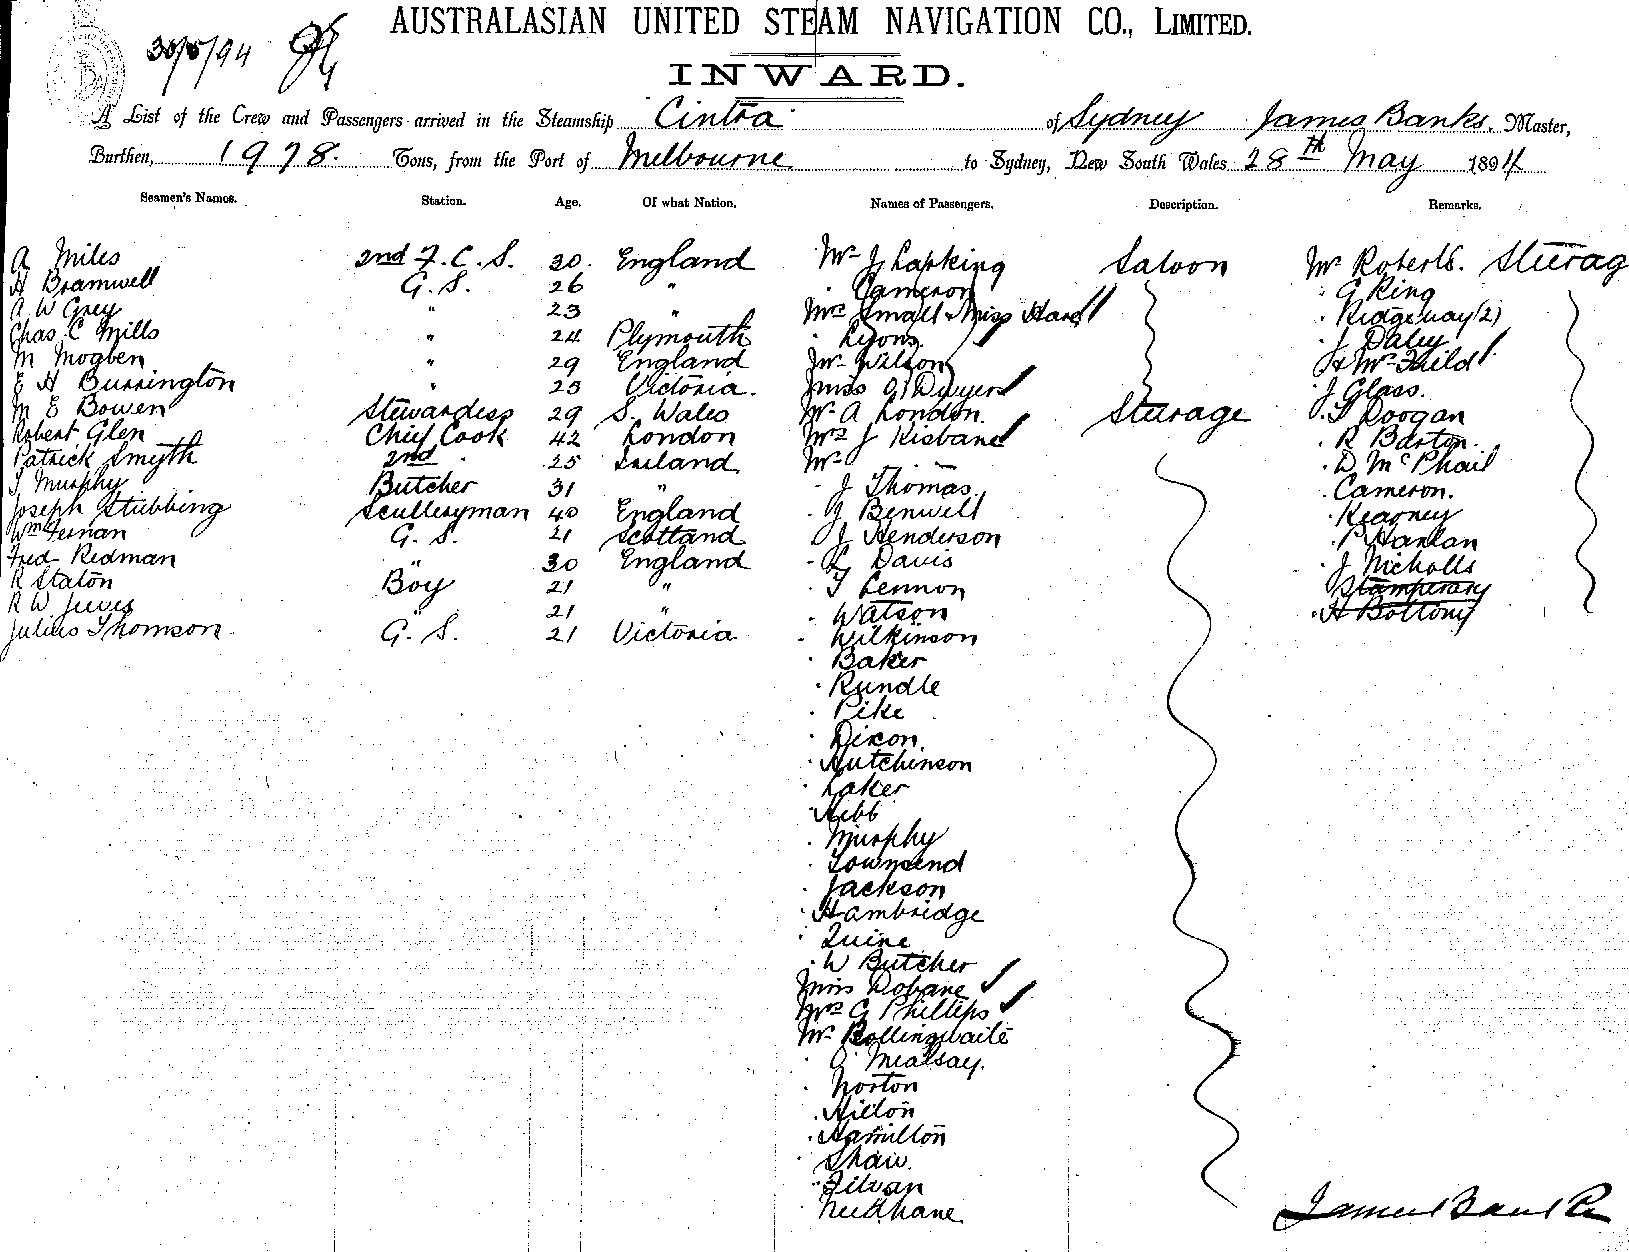 AUSTRALASIAN UNITED STEAM NAVIGATION CO., LIMITED.
30/5/94
INWARD.
A List of the Crew and Passengers arrived in the Steamship Cintra of Sydney James Banks. Master,
Burthen, 1978. Tons, from the Port of Melbourne to Sydney, New South Wales 28th May 1894
Seamen's Names. Station. Age. Of what Nation. Names of Passengers. Description. Remarks.
A Miles 2nd F.C.S. 30. England Mr J Lapking Saloon Mr Roberts. Sturag
H Bramwell G.S. 26 " Cameron " G King
A W Grey " 23 " Mrs Small & Miss Hard " Ridgeway (2)
Chas. C Mills " 24 Plymouth Lyons. " J Daley
M Mogben " 29 England Mr Wilson H McFeild
E H Burrington " 23 Victoria. Miss G Dwyer J Glass.
M E Bowen Stewardess 29 S. Wales Mr A London. Sturage T Doogan
Robert Glen Chief Cook 42 London Mrs J Kisbane R Barton.
Patrick Smyth 2nd " 25 Ireland Mr D McPhail
J Murphy Butcher 31 " J Thomas. Cameron.
Joseph Stubbing Sculleryman 40 England G Benwell Kearney
Wm Fernan G.S. 21 Scotland J Henderson P Hanlan
Fred Redman " 30 England L Davis J Nicholls
R Staton Boy 21 " T Lennon Stamperary
R W Jewes " 21 " Watson H Bottony
Julius Thomson G.S. 21 Victoria Wilkinson
Baker
Rundle
Pike
Dixon.
Hutchinson
Laker
Hibb
Murphy
Townsend
Jackson
Hambridge
Quine
W Butcher
Miss Dobane
Mrs G Phillips
Mr Bollingwaite
G Mealsay.
Norton
Hilton
Hamilton
Shaw.
Filvan
Needhane
James Banks